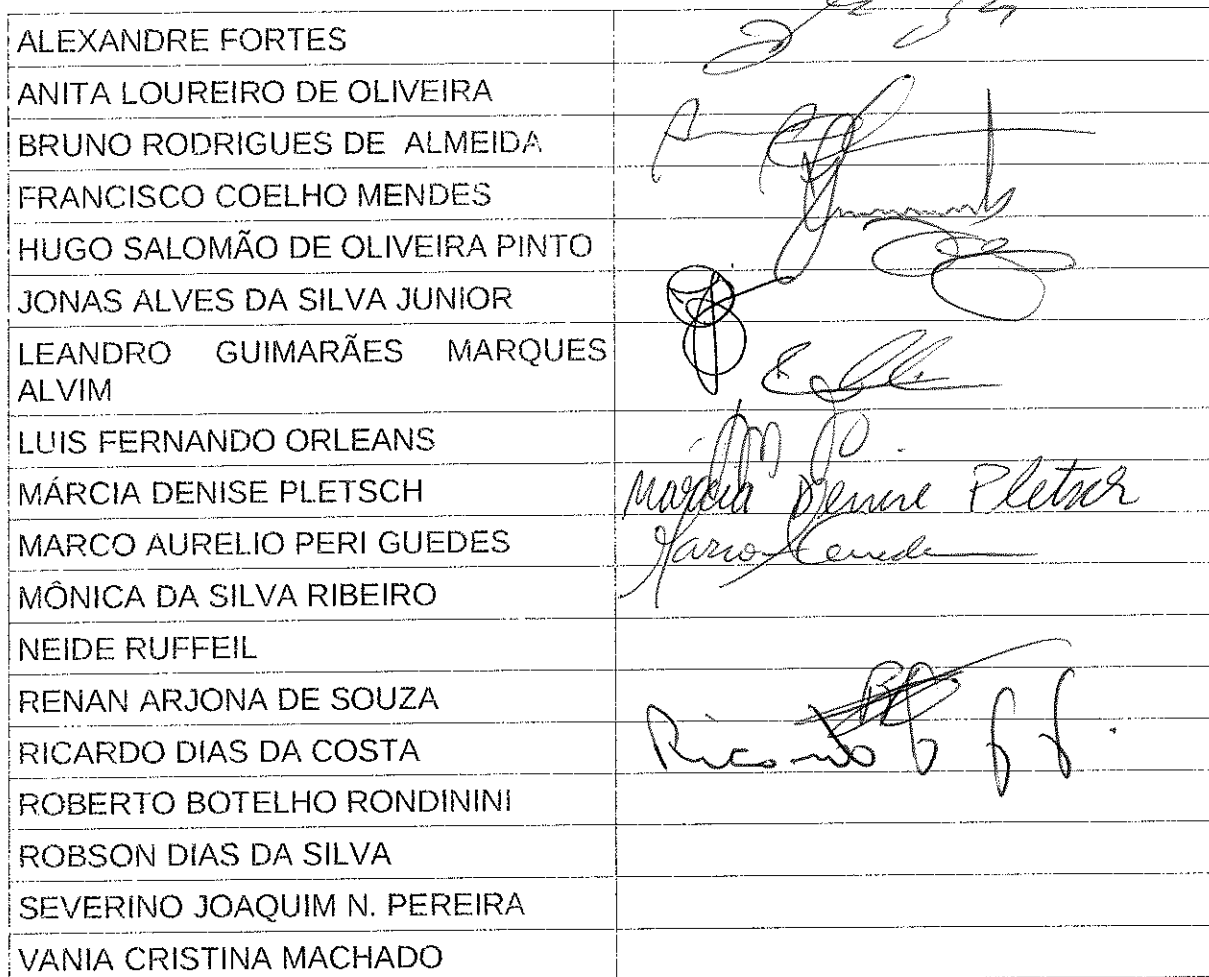 ALEXANDRE FORTES
ANITA LOUREIRO DE OLIVEIRA
BRUNO RODRIGUES DE ALMEIDA
FRANCISCO COELHO MENDES
HUGO SALOMÃO DE OLIVEIRA PINTO
JONAS ALVES DA SILVA JUNIOR
LEANDRO GUIMARÃES MARQUES
ALVIM
LUIS FERNANDO ORLEANS
MÁRCIA DENISE PLETSCH
Márcia Denise Pletsch
MARCO AURELIO PERI GUEDES
MÔNICA DA SILVA RIBEIRO
NEIDE RUFFEIL
RENAN ARJONA DE SOUZA
RICARDO DIAS DA COSTA
Ricardo
ROBERTO BOTELHO RONDININI
ROBSON DIAS DA SILVA
SEVERINO JOAQUIM N. PEREIRA
VANIA CRISTINA MACHADO